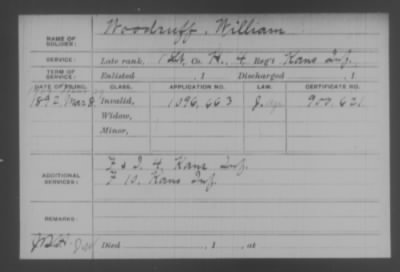 NAME OF SOLDIER: Woodruff, William
SERVICE: Late rank, 1 Lt, Co. H., 4, Reg't Kans Inf.
TERM OF SERVICE: Enlisted , 1 Discharged , 1
DATE OF FILING. CLASS. APPLICATION NO. LAW. CERTIFICATE NO.
1892, Mar 8 Invalid, 1096,663 J. 900,621
Widow,
Minor,
ADDITIONAL SERVICES: F & I. 4, Kans Inf.
F 10, Kans Inf.
REMARKS:
Died , 1 , at